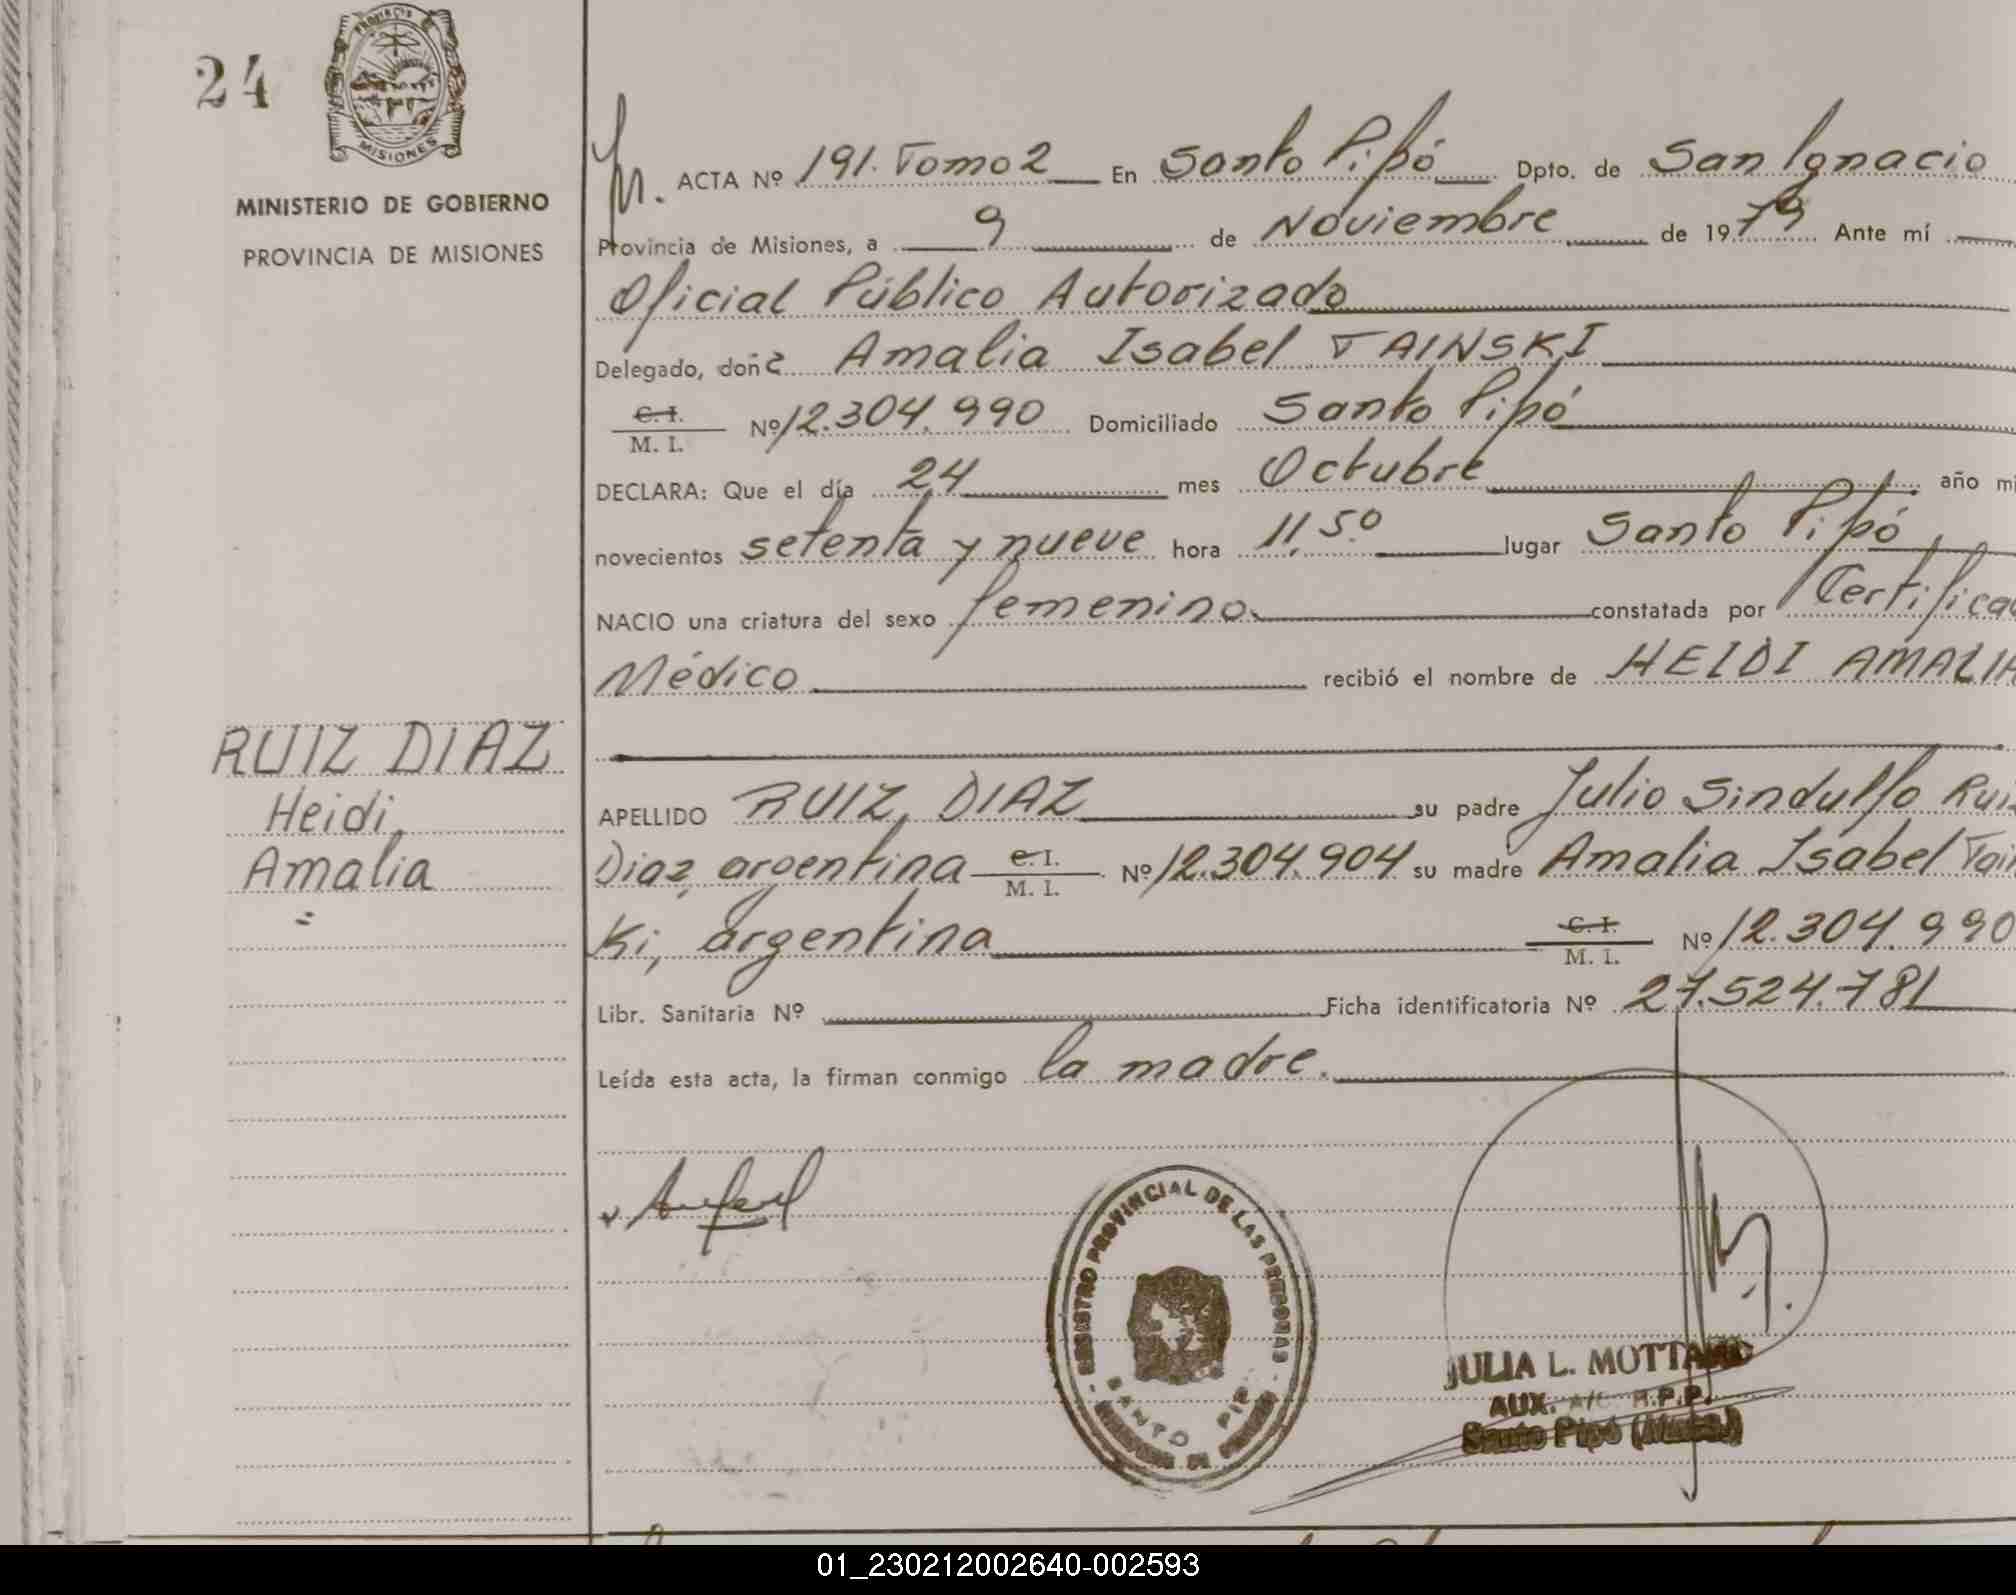 24
PROVINCIA DE
MISIONES
MINISTERIO DE GOBIERNO
PROVINCIA DE MISIONES
RUIZ DIAZ
Heidi
Amalia
=
ACTA Nº 191. Tomo 2 En Santo Pipó Dpto. de San Ignacio
Provincia de Misiones, a 9 de Noviembre de 1979 Ante mí
Oficial Público Autorizado
Delegado, doña Amalia Isabel TAINSKI
C. I.
M. I. Nº 12.304.990 Domiciliado Santo Pipó
DECLARA: Que el día 24 mes Octubre año mi
novecientos setenta y nueve hora 11,50 lugar Santo Pipó
NACIO una criatura del sexo femenino. constatada por Certifica
Médico recibió el nombre de HEIDI AMALIA
APELLIDO RUIZ DIAZ su padre Julio Sindulfo Rui
Diaz, argentina C. I. M. I. Nº 12.304.904 su madre Amalia Isabel Tain
Ki, argentina C. I. M. I. Nº 12.304.990
Libr. Sanitaria Nº Ficha identificatoria Nº 27.524.781
Leída esta acta, la firman conmigo la madre.
REGISTRO PROVINCIAL DE LAS PERSONAS
SANTO PIPÓ
JULIA L. MOTTA
AUX. A/C R.P.P.
Santo Pipó (Mnes.)
01_230212002640-002593